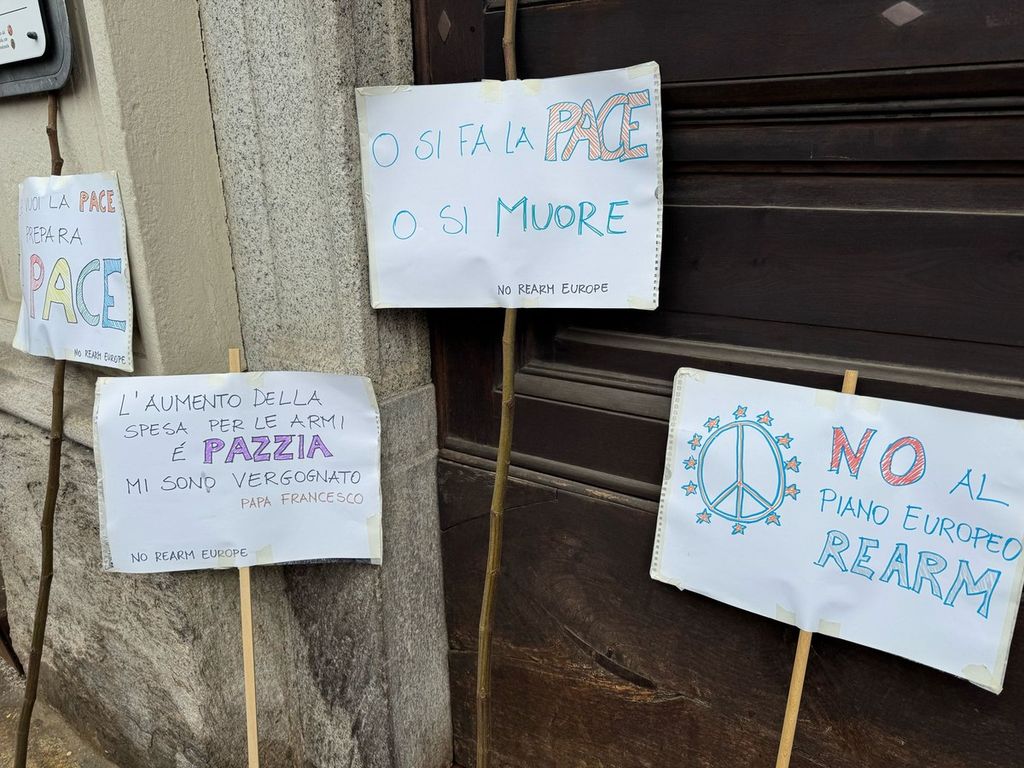 VUOI LA PACE
PREPARA
PACE
NO REARM EUROPE
L'AUMENTO DELLA
SPESA PER LE ARMI
É PAZZIA
MI SONO VERGOGNATO
PAPA FRANCESCO
NO REARM EUROPE
O SI FA LA PACE
O SI MUORE
NO REARM EUROPE
NO AL
PIANO EUROPEO
REARM